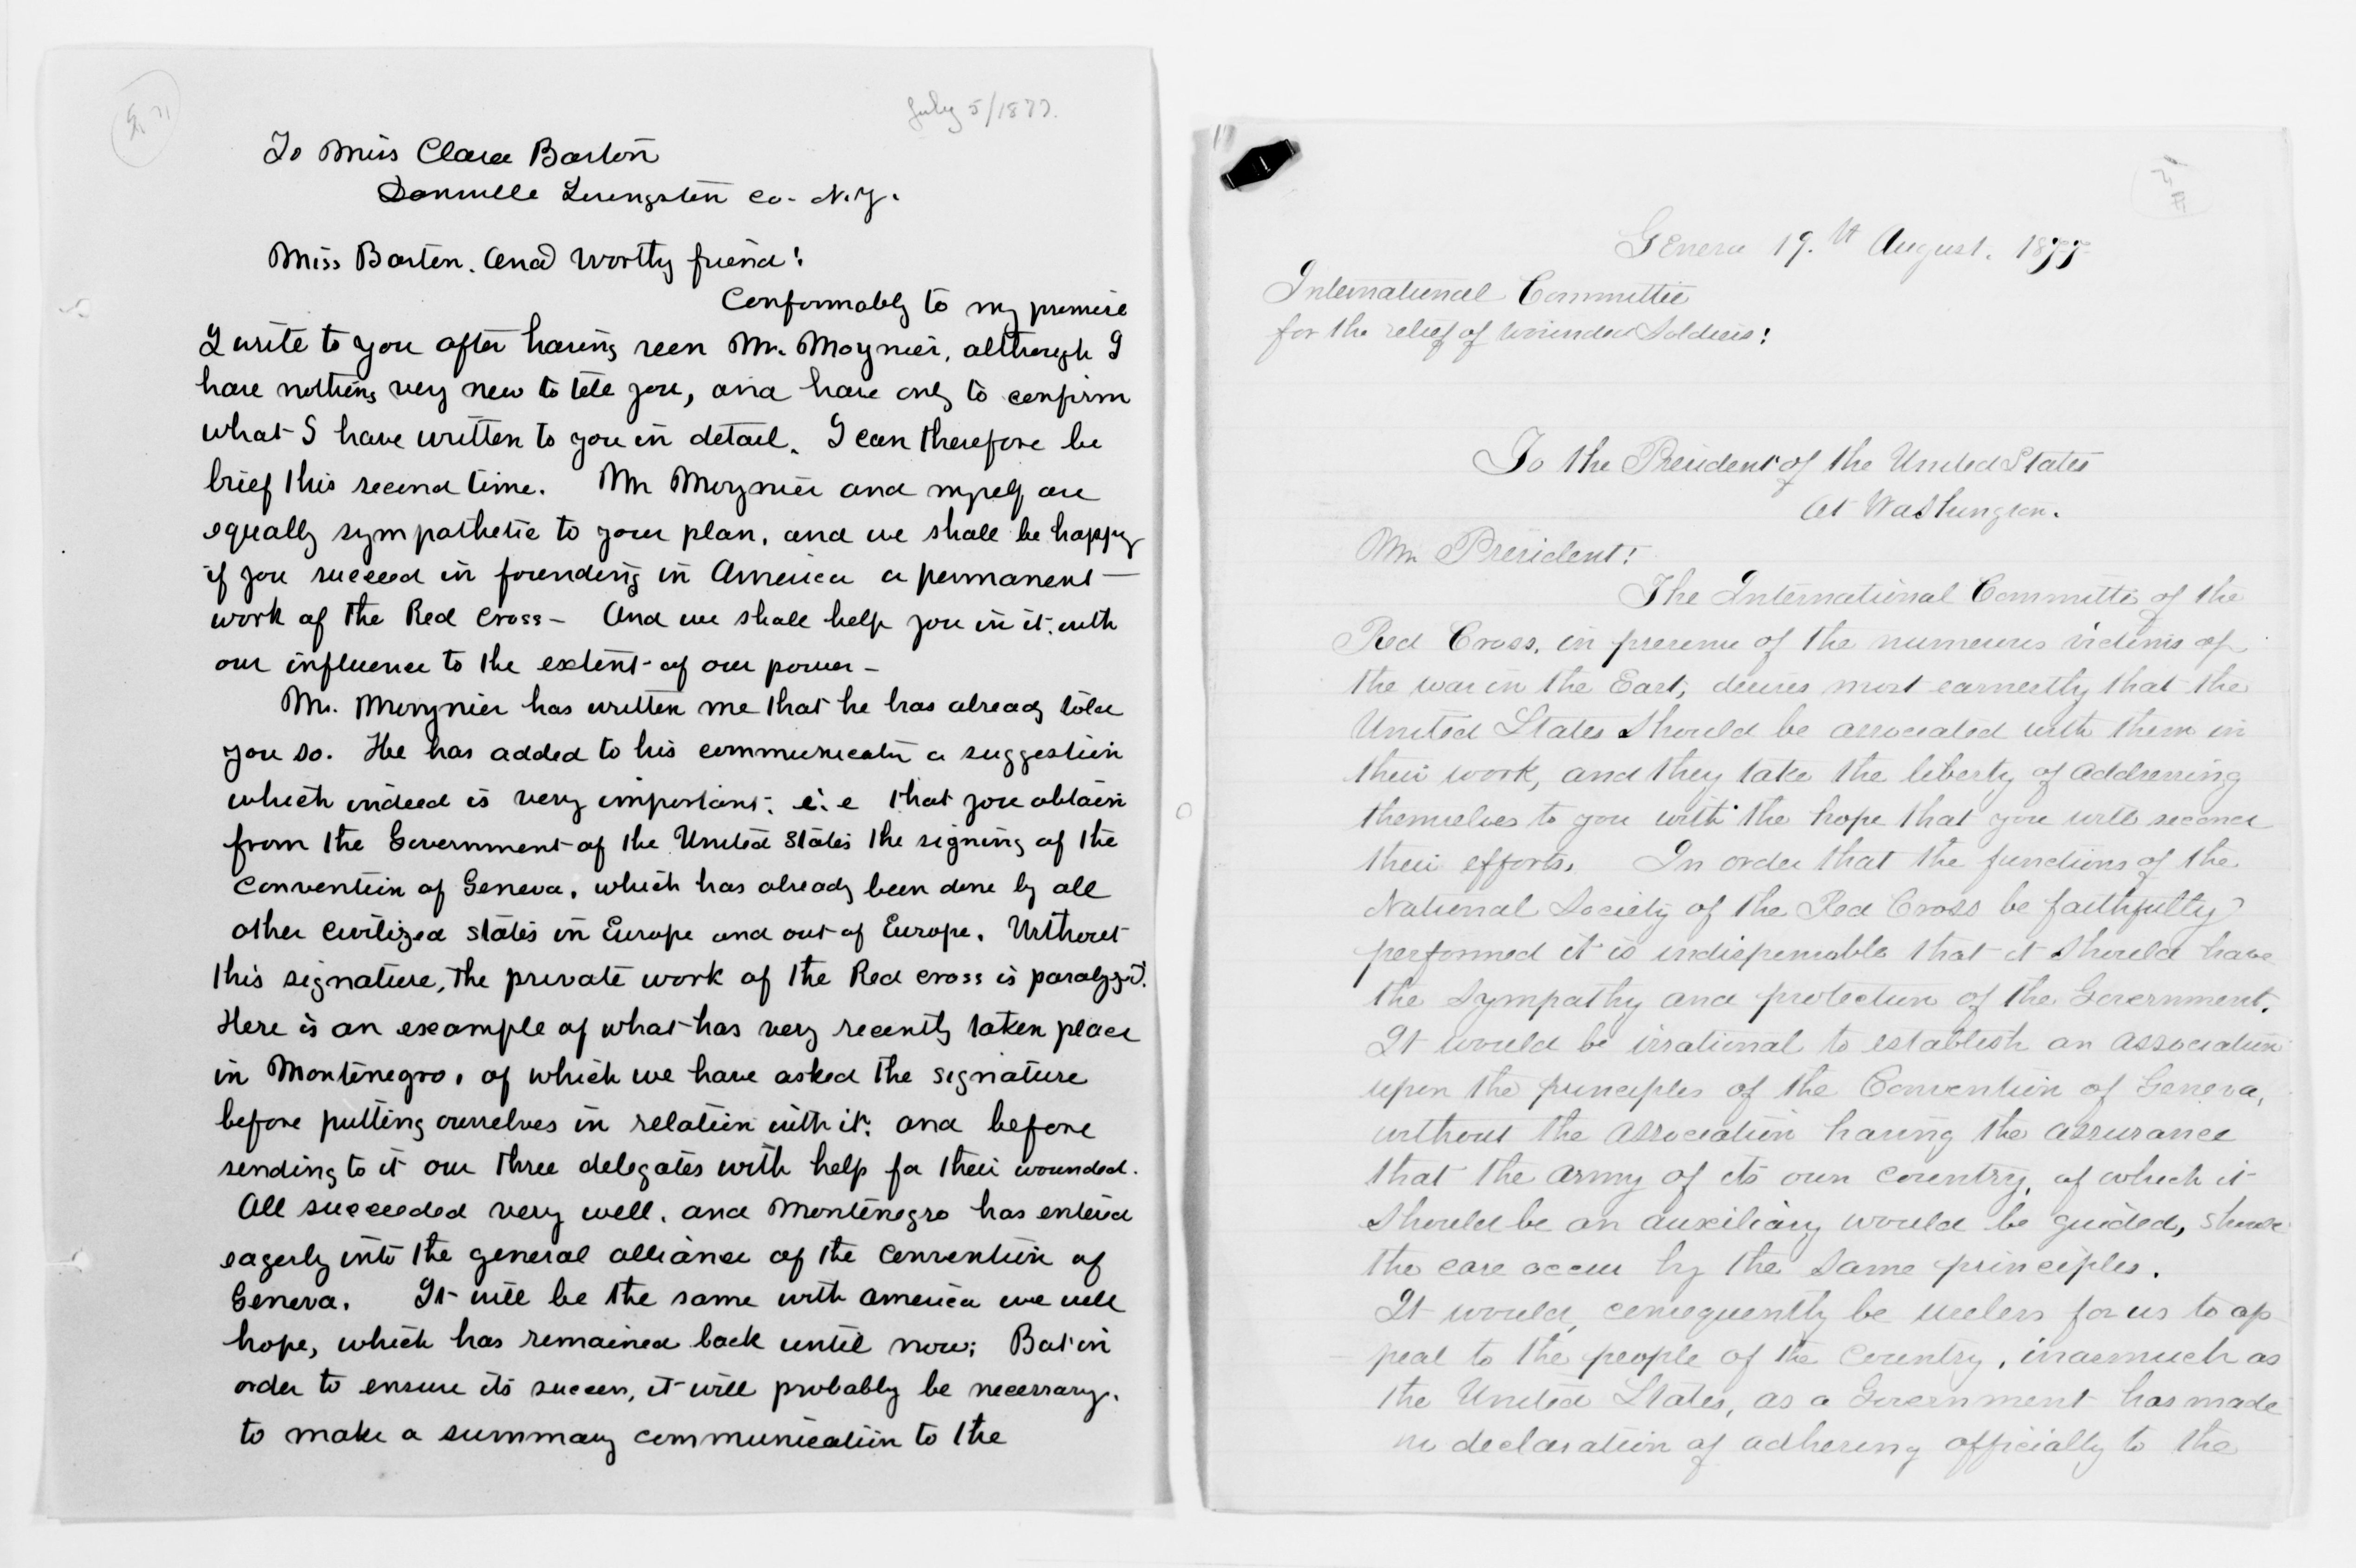 July 5/1877.
To Miss Clara Barton
Dansville Livingston Co. N.Y.
Miss Barton. And worthy friend!
Conformably to my promise
I write to you after having seen Mr. Moynier, although I
have nothing very new to tell you, and have only to confirm
what I have written to you in detail. I can therefore be
brief this second time. Mr Moynier and myself are
equally sympathetic to your plan, and we shall be happy
if you succeed in founding in America a permanent
work of the Red Cross – And we shall help you in it, with
our influence to the extent of our power –
Mr. Moynier has written me that he has already told
you so. He has added to his communicatn a suggestion
which indeed is very important; i.e that you obtain
from the Government of the United States the signing of the
Convention of Geneva, which has already been done by all
other civilized states in Europe and out of Europe. Without
this signature, the private work of the Red Cross is paralyzd.
Here is an example of what has very recently taken place
in Montenegro, of which we have asked the signature
before putting ourselves in relation with it; and before
sending to it our three delegates with help for their wounded.
All succeeded very well, and Montenegro has entered
eagerly into the general alliance of the Convention of
Geneva. It will be the same with America we will
hope, which has remained back until now; But in
order to ensure its success, it will probably be necessary.
to make a summary communication to the
Geneva 19.th August. 1877
International Committee
for the relief of wounded Soldiers:
To the President of the United States
At Washington.
Mr President!
The International Committe of the
Red Cross, in presence of the numerous victims of
the war in the East, desires most earnestly that the
United States should be associated with them in
their work, and they take the liberty of addressing
themselves to you with the hope that you will second
their efforts. In order that the functions of the
National Society of the Red Cross be faithfully
performed it is indispensable that it should have
the sympathy and protection of the Government.
It would be irrational to establish an association
upon the principles of the Convention of Geneva,
without the association having the assurance
that the army of its own country, of which it
should be an auxiliary would be guided, should
the case occur by the same principles.
It would, consequently be useless for us to ap
peal to the people of the country, inasmuch as
the United States, as a Government has made
no declaration of adhering officially to the